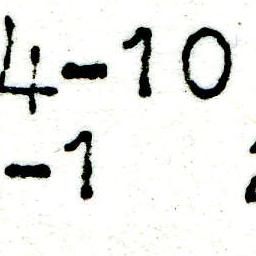 4-10
-1